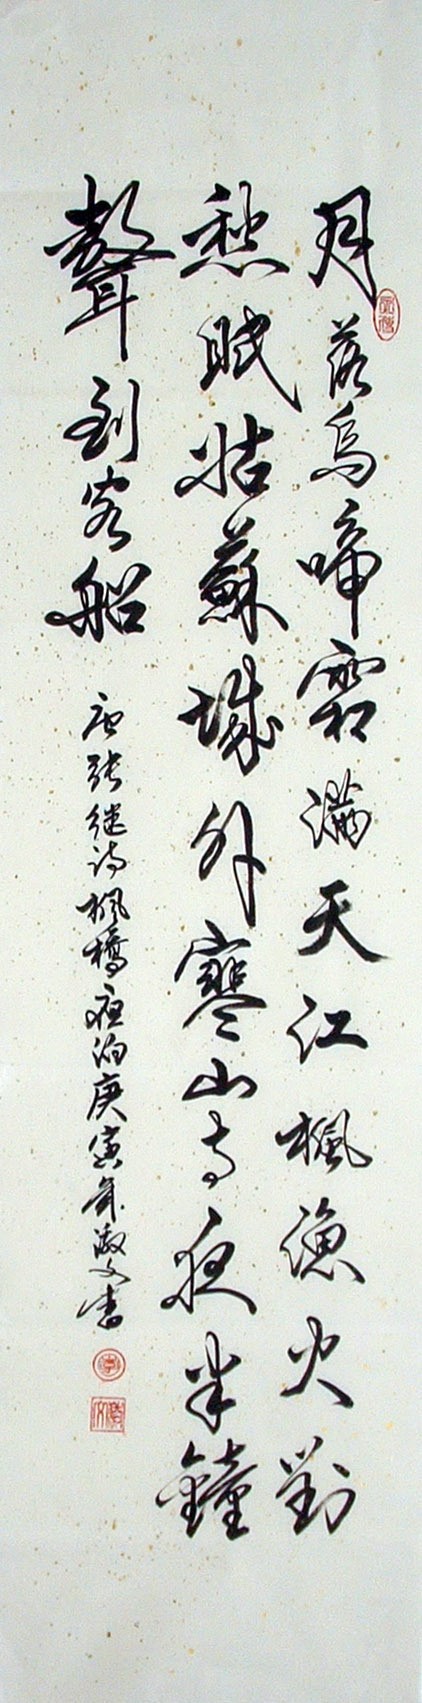 月落烏啼霜滿天江楓漁火對
愁眠姑蘇城外寒山寺夜半鐘
聲到客船
唐張继诗楓橋夜泊庚寅年文書